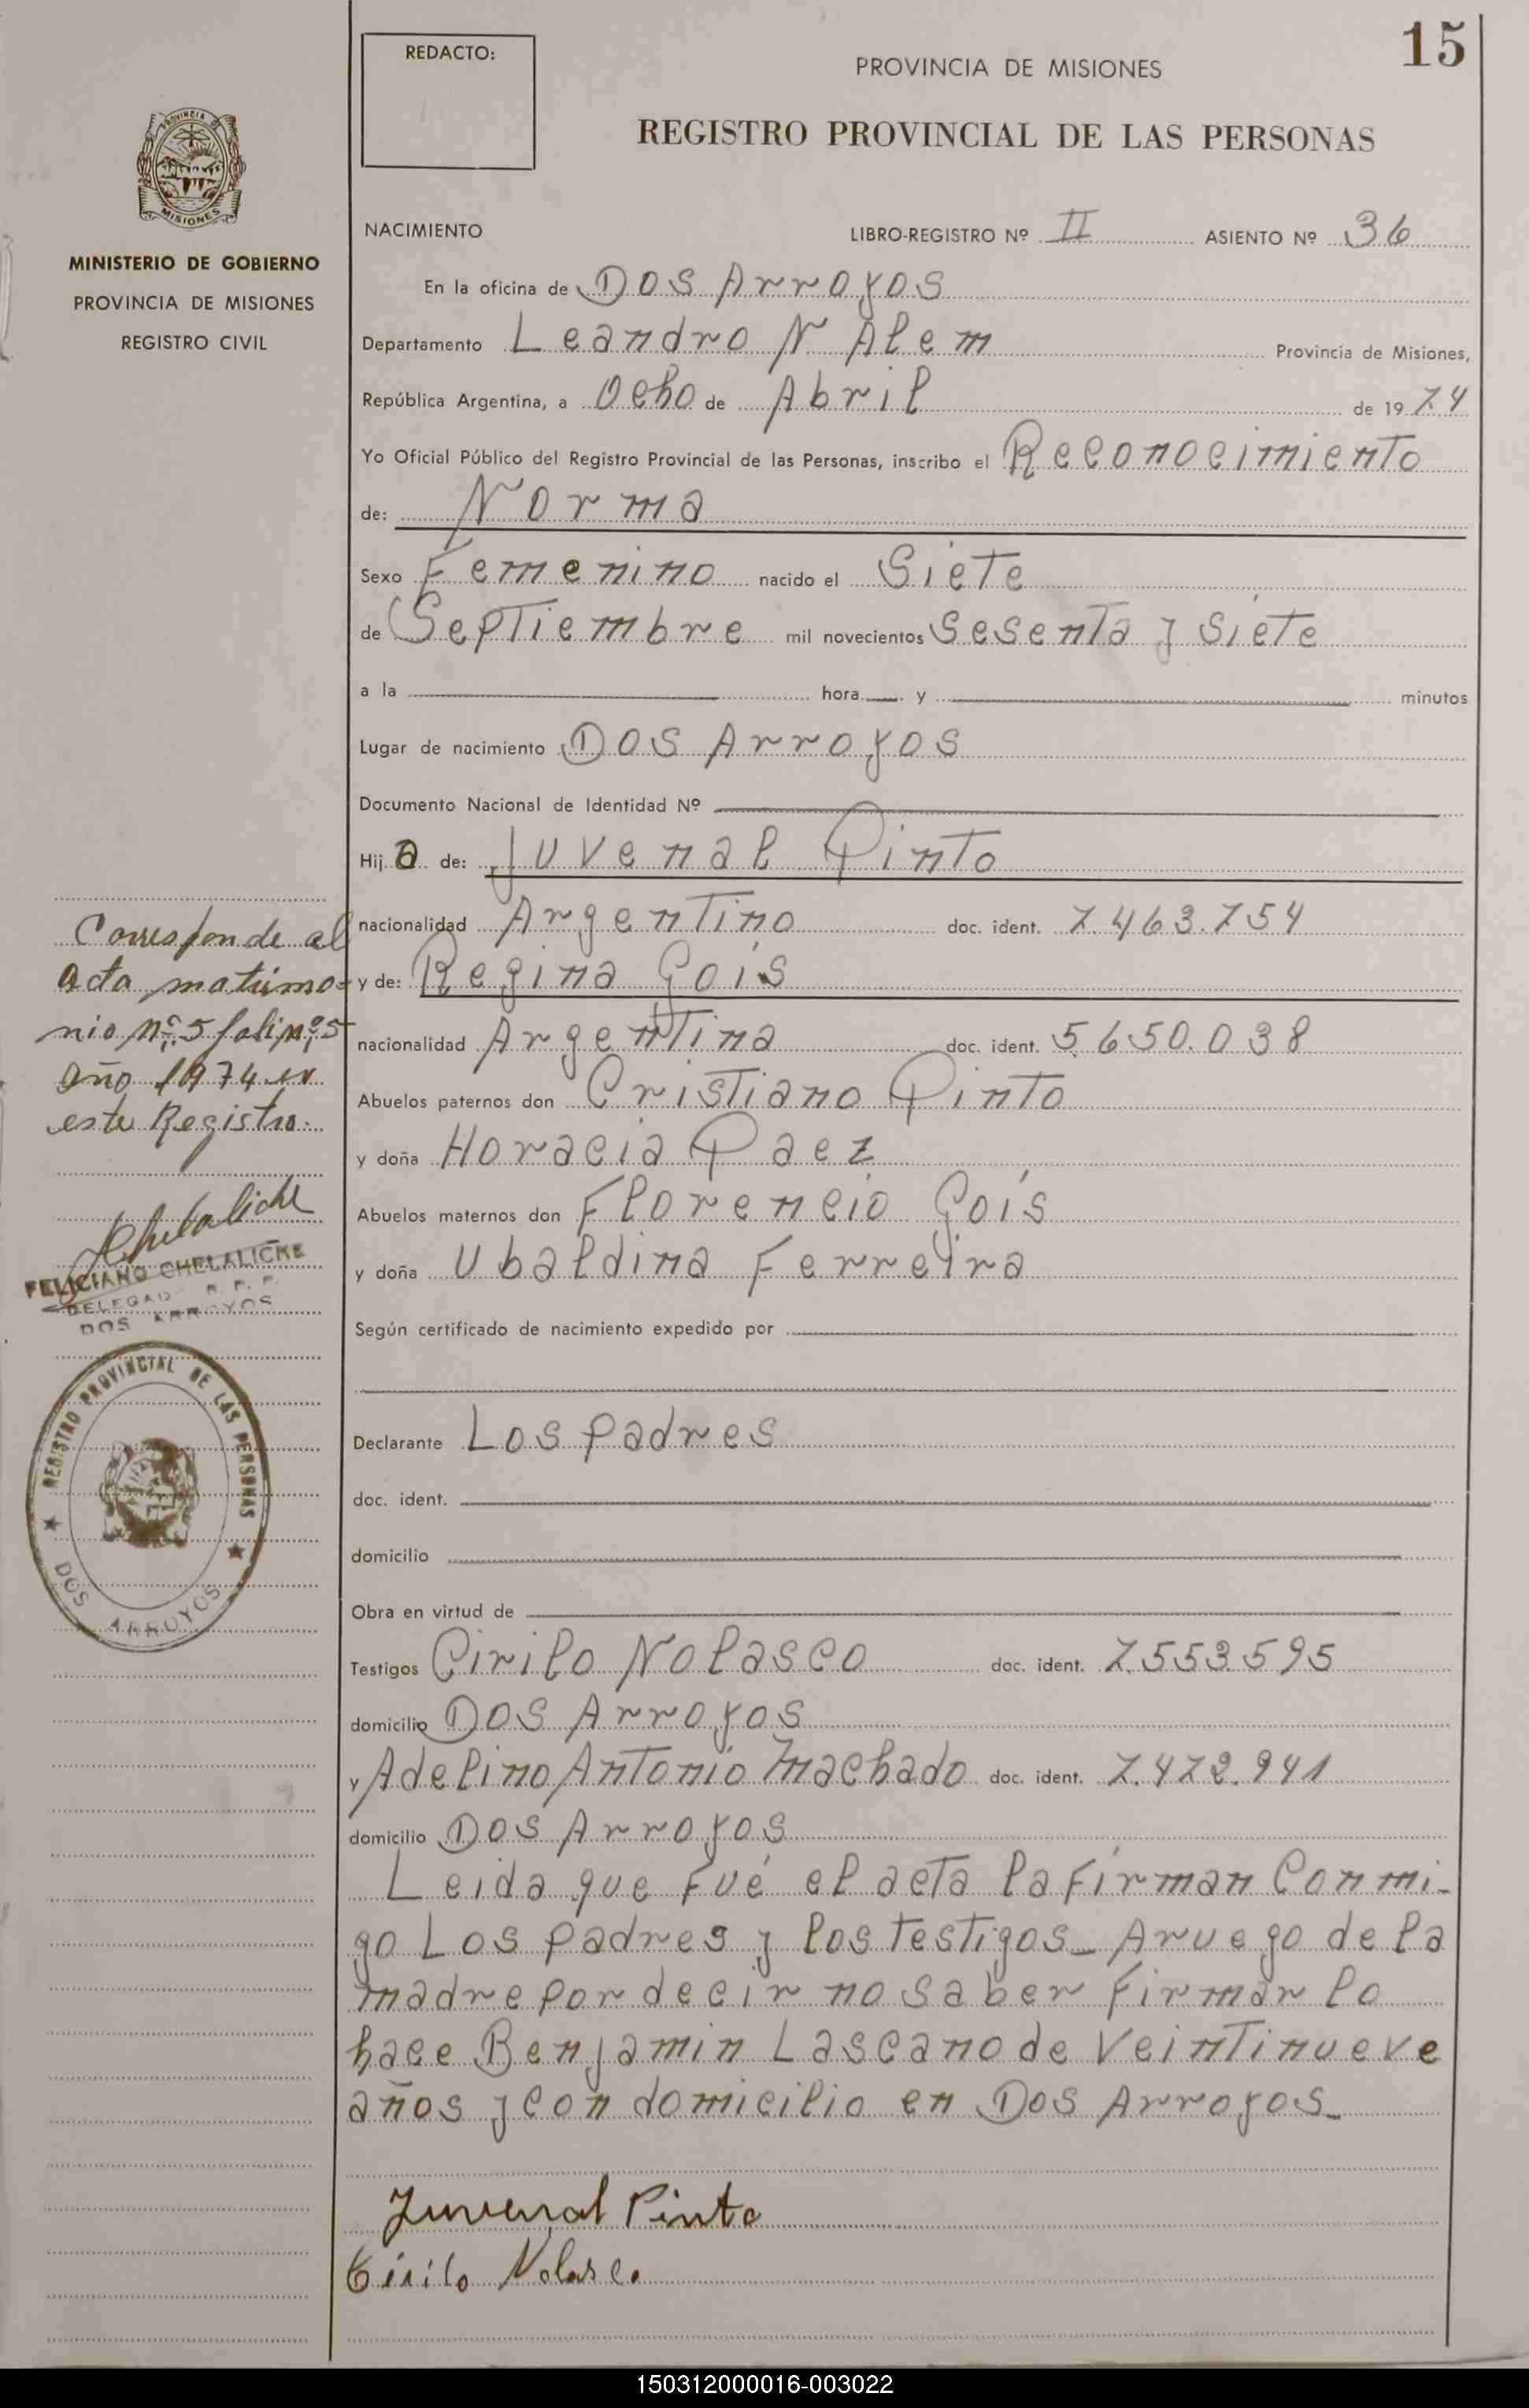 15
REDACTO:
PROVINCIA DE MISIONES
REGISTRO PROVINCIAL DE LAS PERSONAS
PROVINCIA D
MISIONES
MINISTERIO DE GOBIERNO
PROVINCIA DE MISIONES
REGISTRO CIVIL
NACIMIENTO LIBRO-REGISTRO Nº II ASIENTO Nº 36
En la oficina de Dos Arroyos
Departamento Leandro N Alem Provincia de Misiones,
República Argentina, a Ocho de Abril de 1974
Yo Oficial Público del Registro Provincial de las Personas, inscribo el Reconocimiento
de: Norma
Sexo Femenino nacido el Siete
de Septiembre mil novecientos Sesenta y Siete
a la hora y minutos
Lugar de nacimiento Dos Arroyos
Documento Nacional de Identidad Nº
Hija de: Juvenal Pinto
nacionalidad Argentino doc. ident. 7.463.754
y de: Regina Gois
nacionalidad Argentina doc. ident. 5.650.038
Abuelos paternos don Cristiano Pinto
y doña Horacia Paez
Abuelos maternos don Florencio Gois
y doña Ubaldina Ferreira
Según certificado de nacimiento expedido por
Declarante Los padres
doc. ident.
domicilio
Obra en virtud de
Testigos Cirilo Nolasco doc. ident. 7.553.595
domicilio Dos Arroyos
y Adelino Antonio Machado doc. ident. 7.472.941
domicilio Dos Arroyos
Leida que fué el acta la firman Conmi-
go Los padres y los testigos_ Aruego de la
madre por decir no saber firmar lo
hace Benjamin Lascano de veintinueve
años y con domicilio en Dos Arroyos_
Juvenal Pinto
Cirilo Nolasco
Corresponde al
acta matrimo-
nio Nº 5 folio Nº 5
año 1974 en
este Registro.
Chelaliche
FELICIANO CHELALICHE
DELEGADO R. P. P.
DOS ARROYOS
REGISTRO PROVINCIAL DE LAS PERSONAS
DOS ARROYOS
150312000016-003022